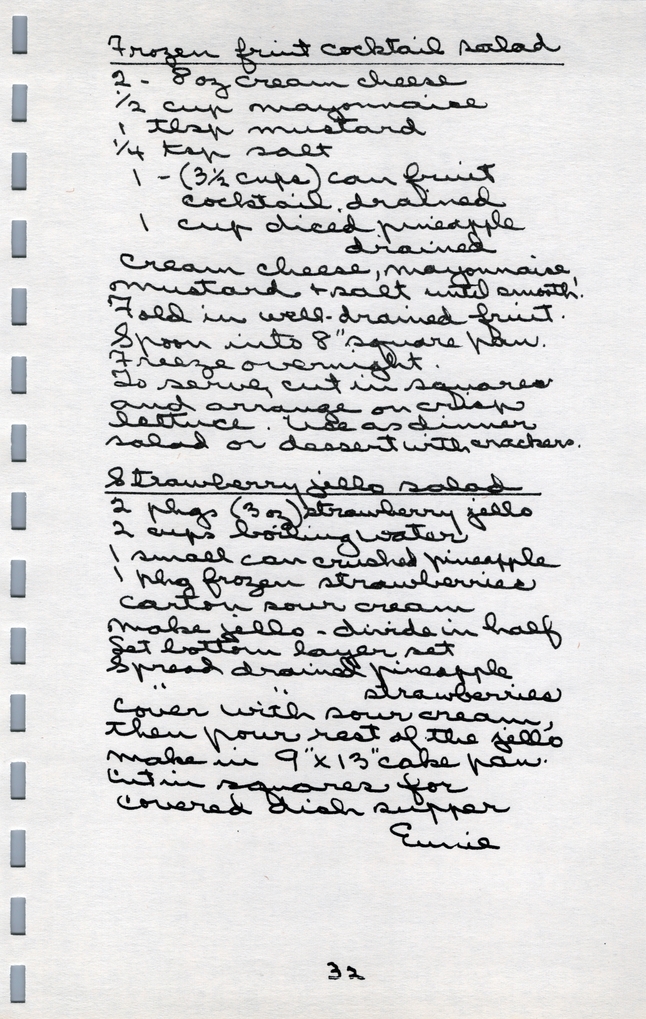 Frozen fruit cocktail salad
2 - 8 oz cream cheese
1/2 cup mayonnaise
1 tbsp mustard
1/4 tsp salt
1 - (3½ cups) can fruit
cocktail, drained
1 cup diced pineapple
drained
Cream cheese, mayonnaise,
mustard + salt until smooth.
Fold in well-drained fruit.
Spoon into 8" square pan.
Freeze overnight.
To serve, cut in squares
and arrange on crisp
lettuce. Use as dinner
salad or dessert with crackers.
Strawberry jello salad
2 pkgs (3 oz) strawberry jello
2 cups boiling water
1 small can crushed pineapple
1 pkg frozen strawberries
carton sour cream
make jello - divide in half
Let bottom layer set
Spread drained pineapple
" " strawberries
cover with sour cream,
then pour rest of the jello
make in 9" x 13" cake pan.
Cut in squares for
covered dish supper
Eunie
32